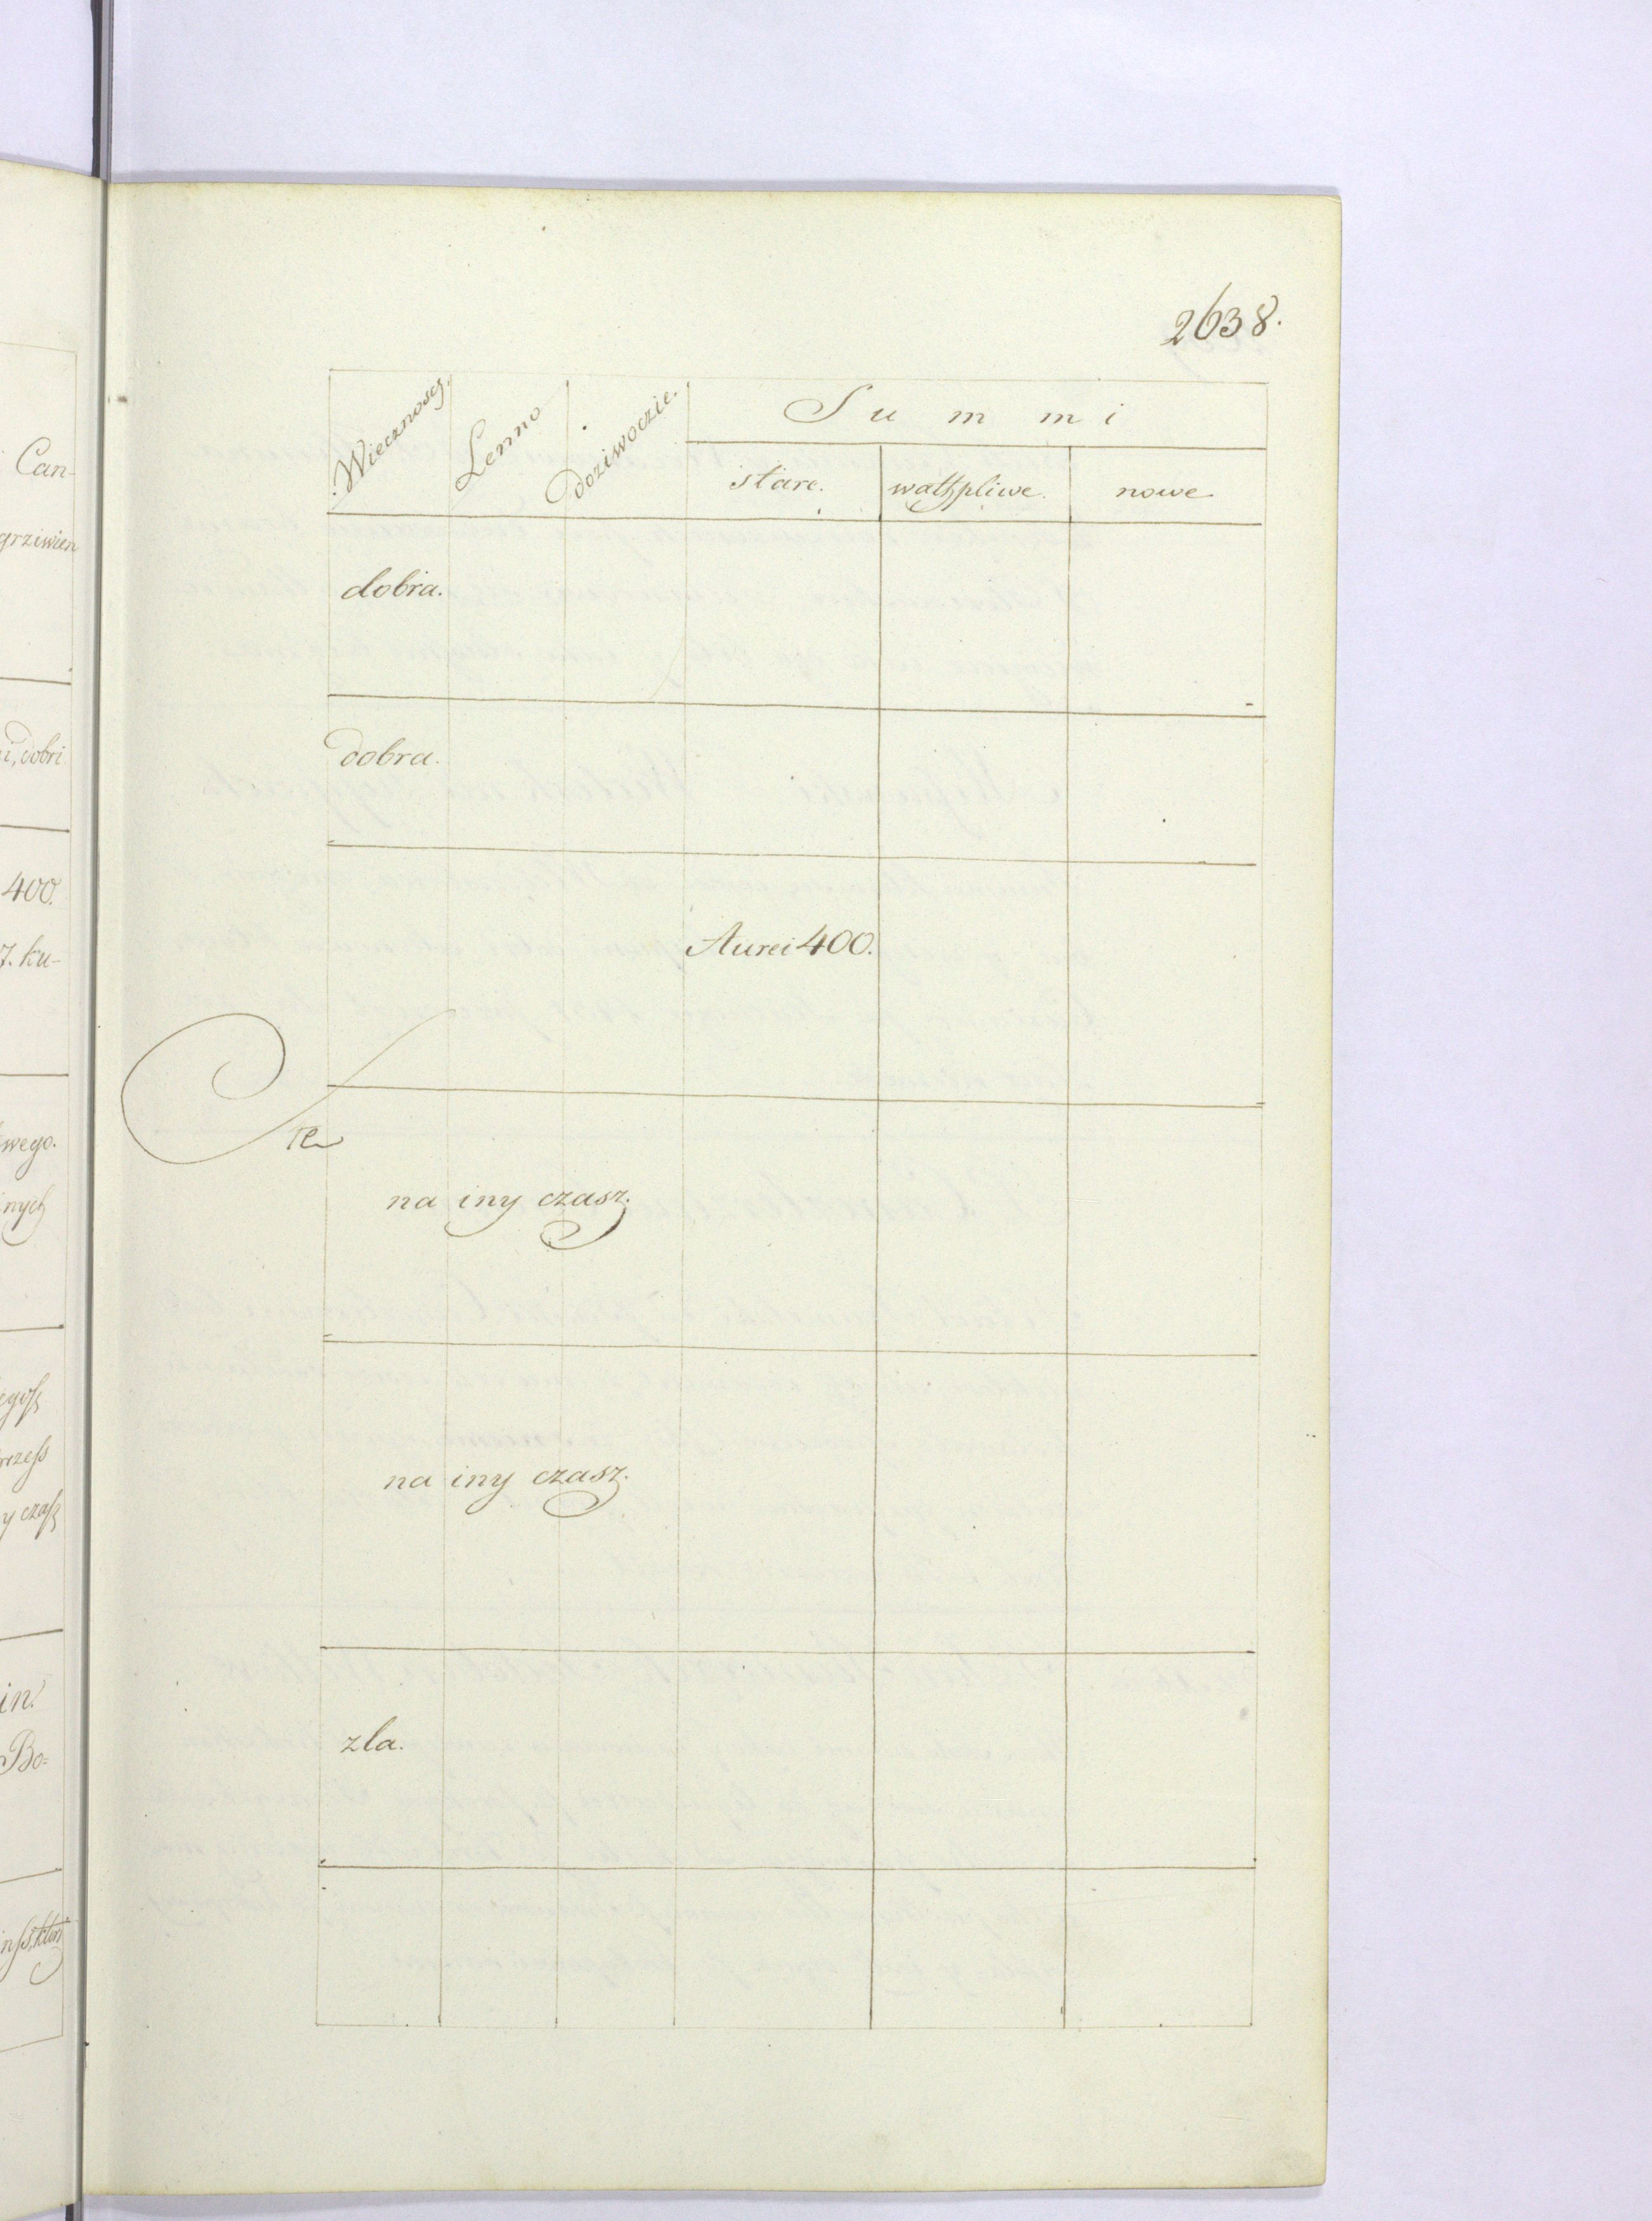 2638.
Wiecznoscz. Lenno doziwoczie. Summi
stare. wathpliwe. nowe
dobra.
dobra.
Aurei 400.
na iny czasz.
na iny czasz.
zla.
Can-
grziwien
dobri
400.
7. ku-
wego.
nych
y czasz
in.
Bo-